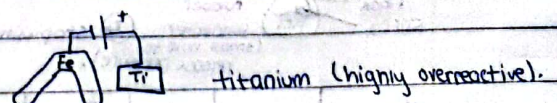 +
Fe
Ti
titanium (highly overreactive).